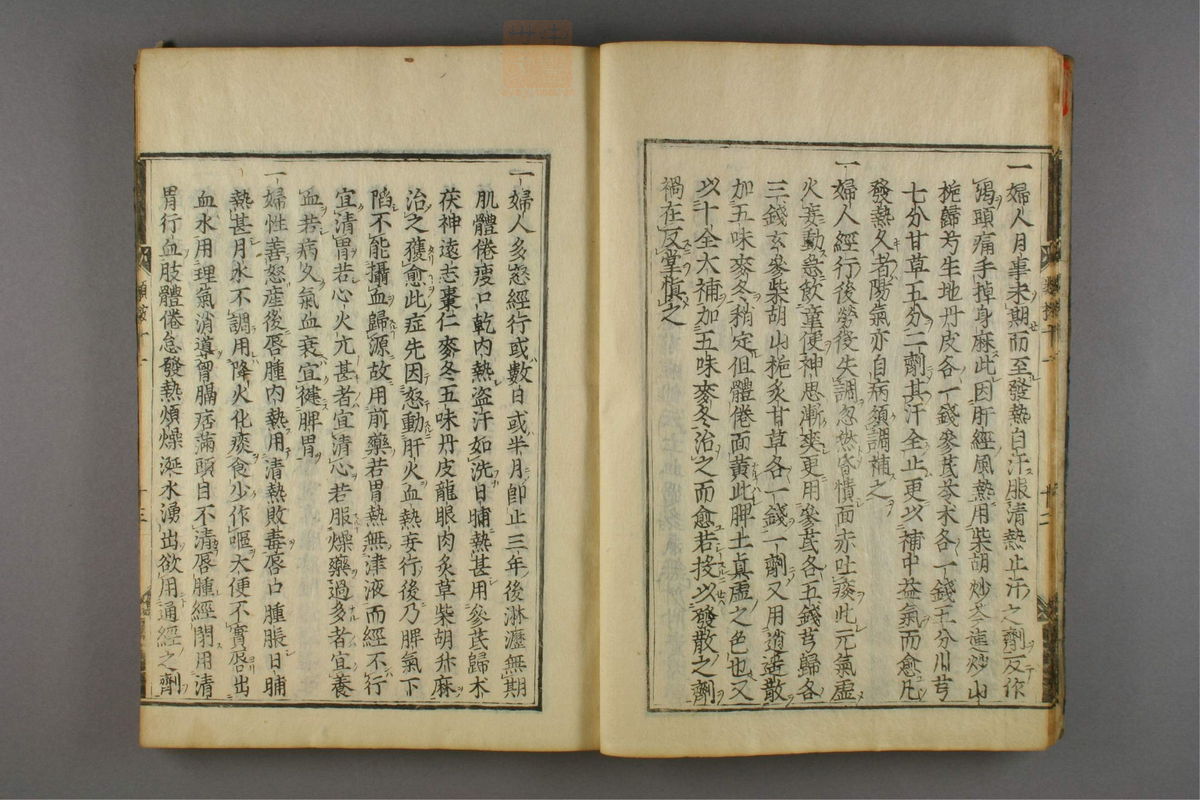 一婦人月事未期而至發熱自汗服清熱止汗之劑反作
渴頭痛手掉身麻此因肝經風熱用柴胡炒芩連炒山
梔歸芍生地丹皮各一錢參芪苓朮各一錢五分川芎
七分甘草五分二劑其汗全止更以補中益氣而愈凡
發熱久者陽氣亦自病須調補之
一婦人經行後勞役失調忽然昏憒面赤吐痰此元氣虛
火妄動急飲童便神思漸爽更用參芪各五錢芎歸各
三錢玄參柴胡山梔炙甘草各一錢一劑又用逍遥散
加五味麥冬稍定但體倦面黃此脾土真虛之色也又
以十全大補加五味麥冬治之而愈若投以發散之劑
禍在反掌慎之
一婦人多怒經行或數日或半月卽止三年後淋瀝無期
肌體倦瘦口乾内熱盗汗如洗日晡熱甚用參芪歸朮
茯神遠志棗仁麥冬五味丹皮龍眼肉炙草柴胡升麻
治之獲愈此症先因怒動肝火血熱妄行後乃脾氣下
陷不能攝血歸源故用前藥若胃熱無津液而經不行
宜清胃若心火亢甚者宜清心若服燥藥過多者宜養
血若病久氣血衰宜健脾胃
一婦性善怒産後唇腫内熱用清熱敗毒唇口腫脹日晡
熱甚月水不調用降火化痰食少作嘔大便不實唇出
血水用理氣消導胷膈痞滿頭目不清唇腫經閉用清
胃行血肢體倦怠發熱煩燥涎水湧出欲用通經之劑